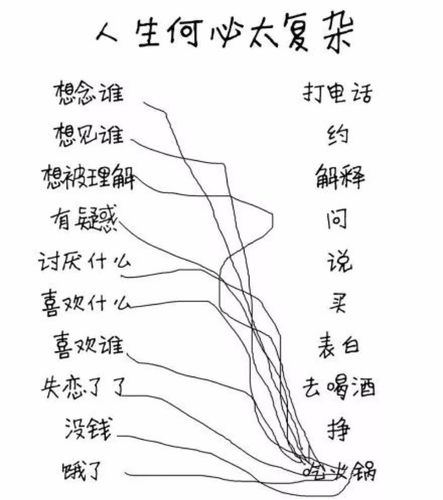 人生何必太复杂
想念谁 打电话
想见谁 约
想被理解 解释
有疑惑 问
讨厌什么 说
喜欢什么 买
喜欢谁 表白
失恋了了 去喝酒
没钱 挣
饿了 吃火锅